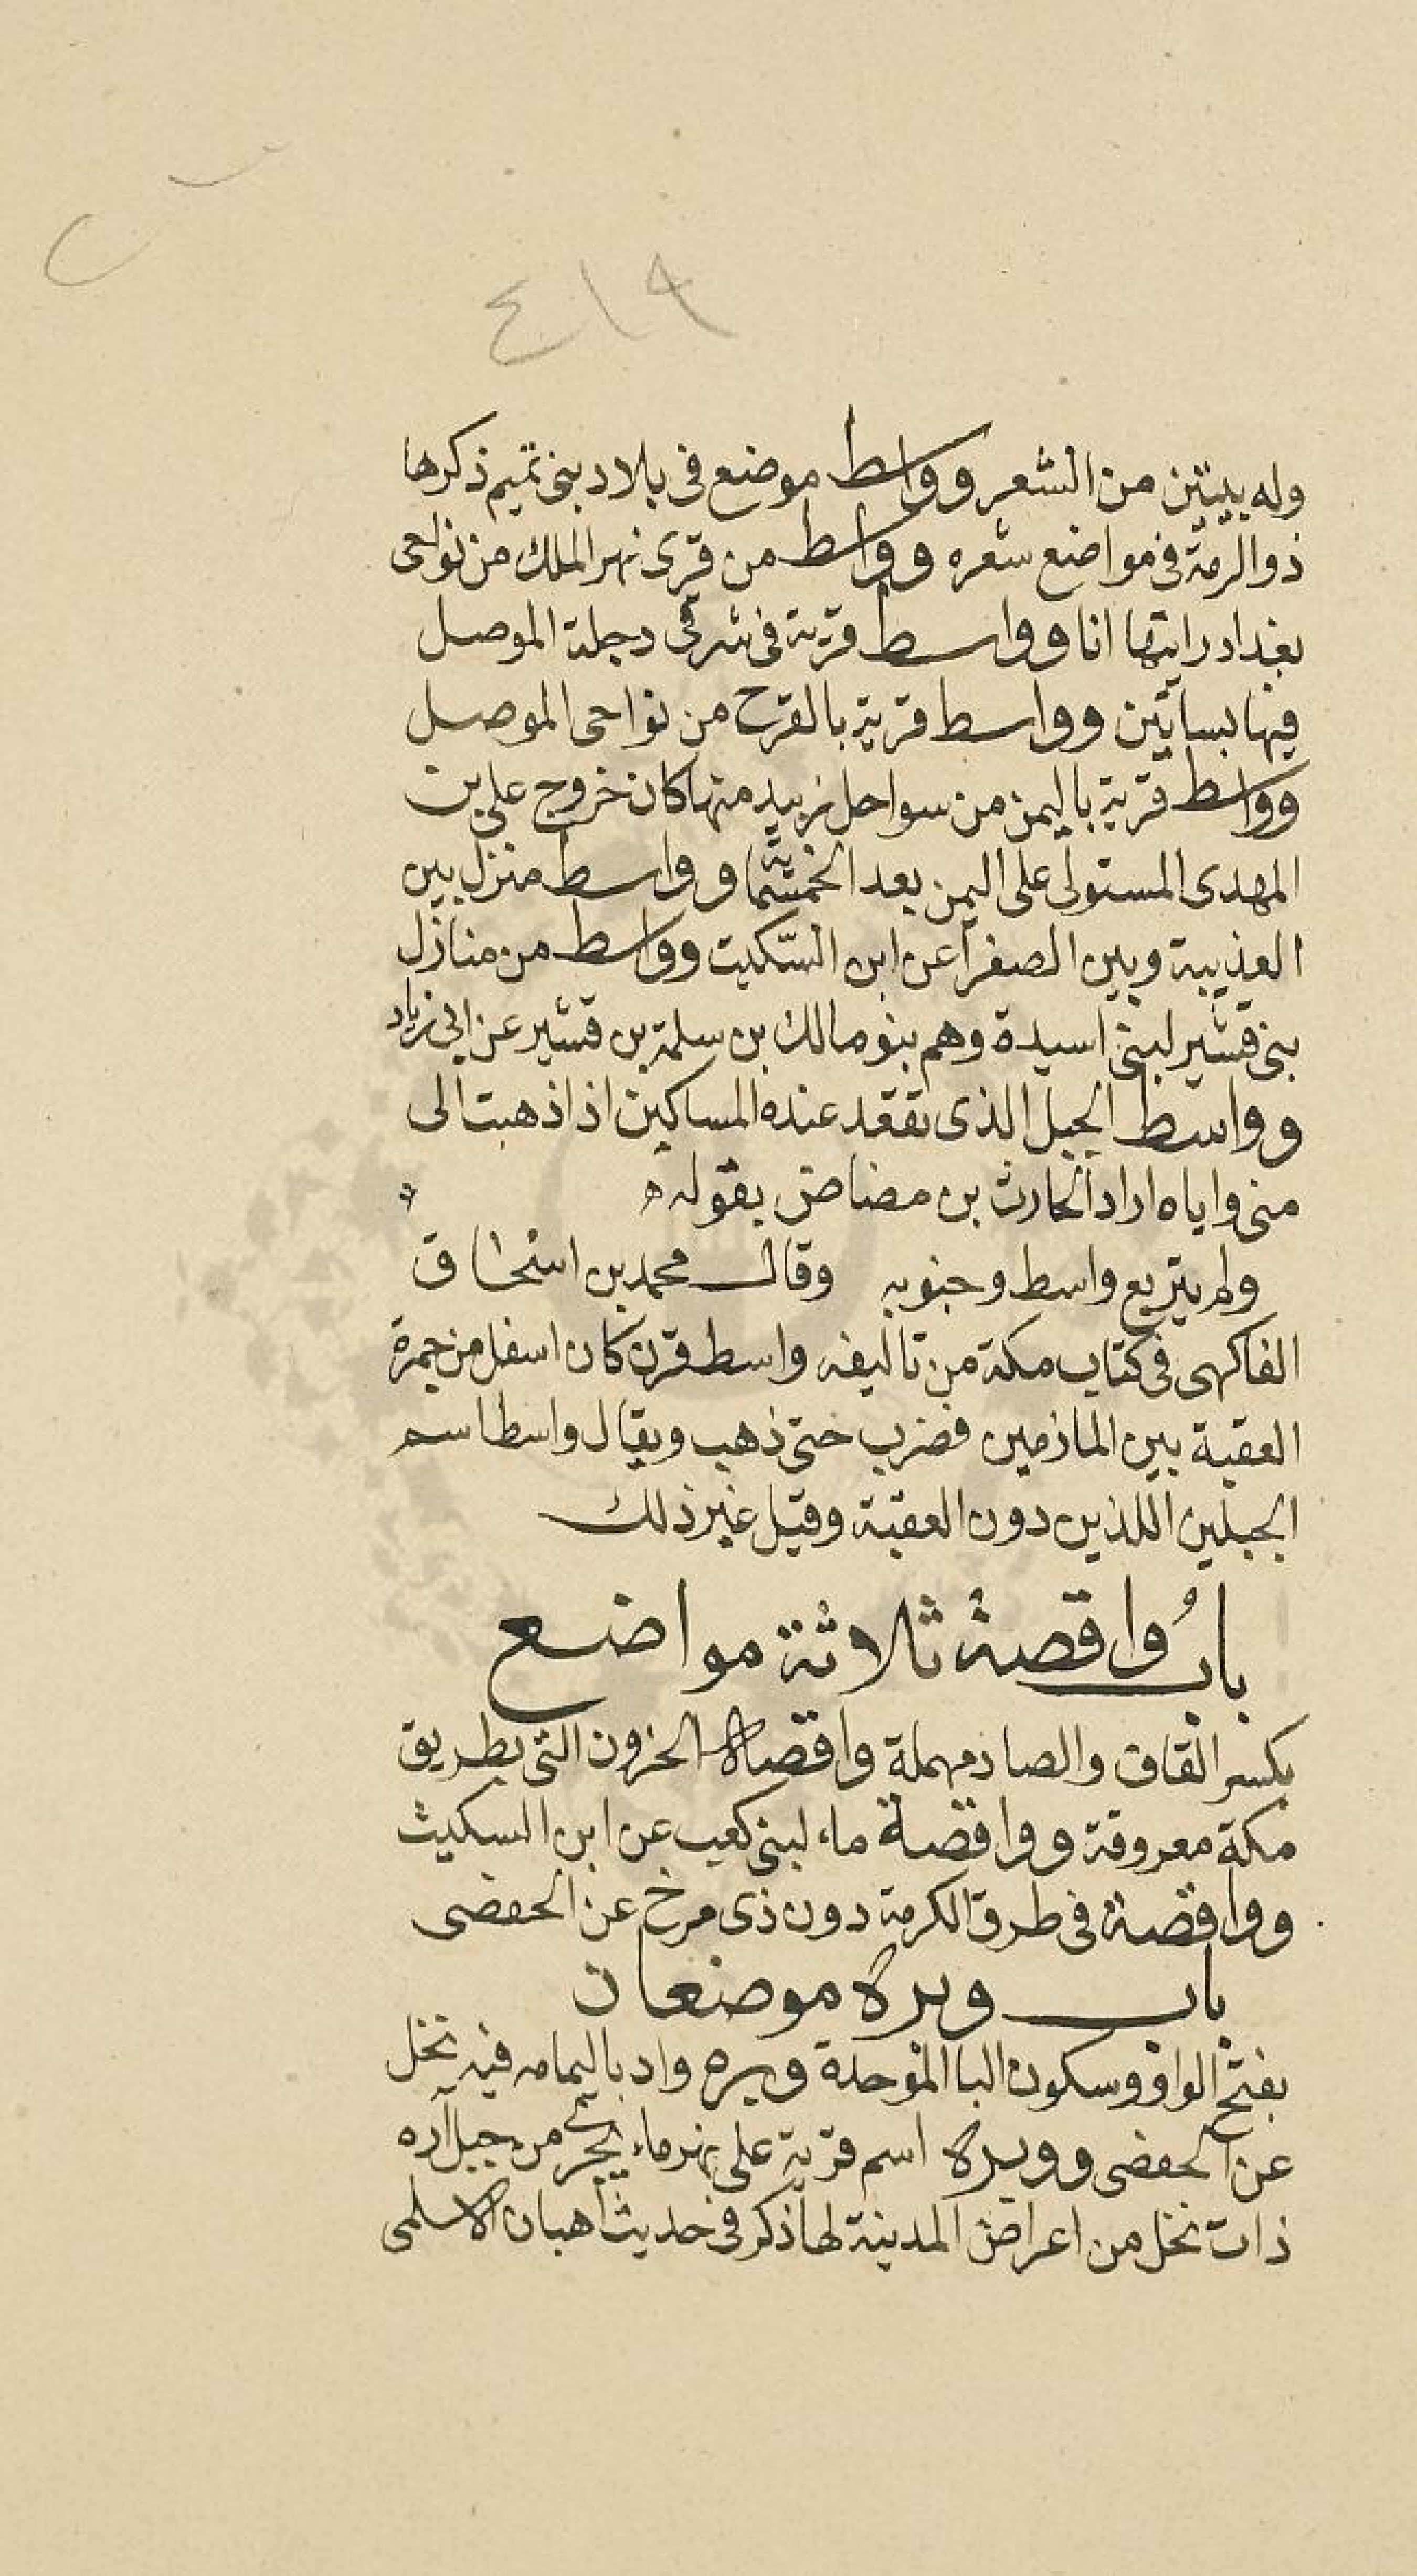 ٤١٩
وله بيتين من الشعر وواسط موضع في بلاد بني تميم ذكرها
ذو الرمة في مواضع شعره وواسط من قرى نهر الملك من نواحي
بغداد رايتها انا وواسط قرية في شرقي دجلة الموصل
فيها بساتين وواسط قرية بالفرح من نواحي الموصل
وواسط قرية باليمن من سواحل زبيد منها كان خروج علي بن
المهدى المستولى على اليمن بعد الخمسمائة وواسط منزل بين
العذيبة وبين الصفرا عن ابن السّكيت وواسط من منازل
بنى قشير لبنى اسيدة وهم بنو مالك بن سلمة بن قشير عن ابى زياد
وواسط الجبل الذى تقعد عنده المساكين اذا ذهبت الى
منى واياه اراد الحارث بن مضاض بقوله
ولم يتربع واسط وجنوبه وقال محمد بن اسحاق
الفاكهى في كتاب مكة من تاليفه واسط قرن كان اسفل من جمرة
العقبة بين المازمين فضرب حتى ذهب ويقال واسط اسم
الجبلين اللذين دون العقبة وقيل غير ذلك
بابُ واقصة ثلاثة مواضع
بكسر القاف والصاد مهملة واقصة الحزون التى بطريق
مكة معروفة وواقصة ماء لبنى كعب عن ابن السكيت
وواقصة في طرق الكرمة دون ذى مرخ عن الحفصى
باب وبرة موضعان
بفتح الواو وسكون البا الموحدة وبره واد باليمامه فيه نخل
عن الحفصى ووبرة اسم قرية على نهر ماء يجرى من جبل آره
ذات نخل من اعراض المدينة لها ذكر في حديث اهبان الاسلمى